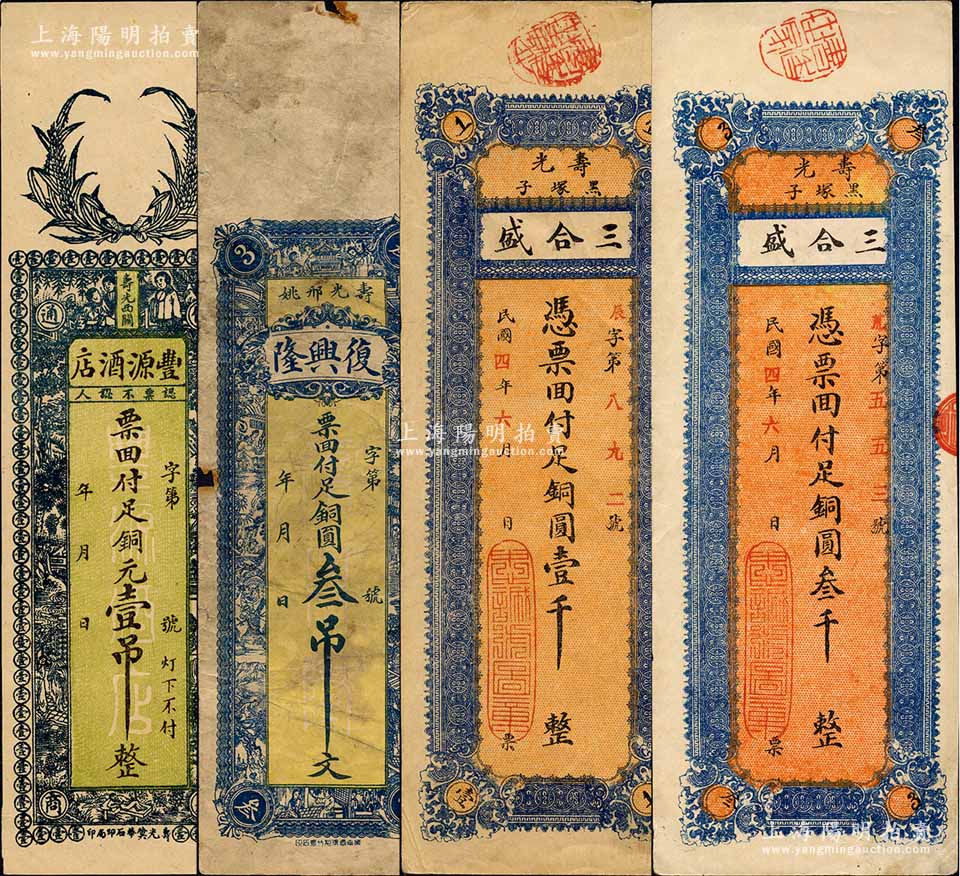 上海陽明拍賣
www.yangmingauction.com
壽光西關
通
豐源酒店
認票不認人
字第 號
票面付足銅元壹吊整
年 月 日
灯下不付
商
壽光
石印局印
3
壽光邢姚
復興隆
字第 號
票面付足銅圓叁吊文
年 月 日
上海陽明拍賣
www.yangmingauction.com
1
壽光
黑塚子
三合盛
辰字第八九二號
憑票面付足銅圓壹千整
民國四年六月 日
票
壹
3
壽光
黑塚子
三合盛
字第五五三號
憑票面付足銅圓叁千整
民國四年六月 日
票
上海陽明拍賣
www.yangmingauction.com